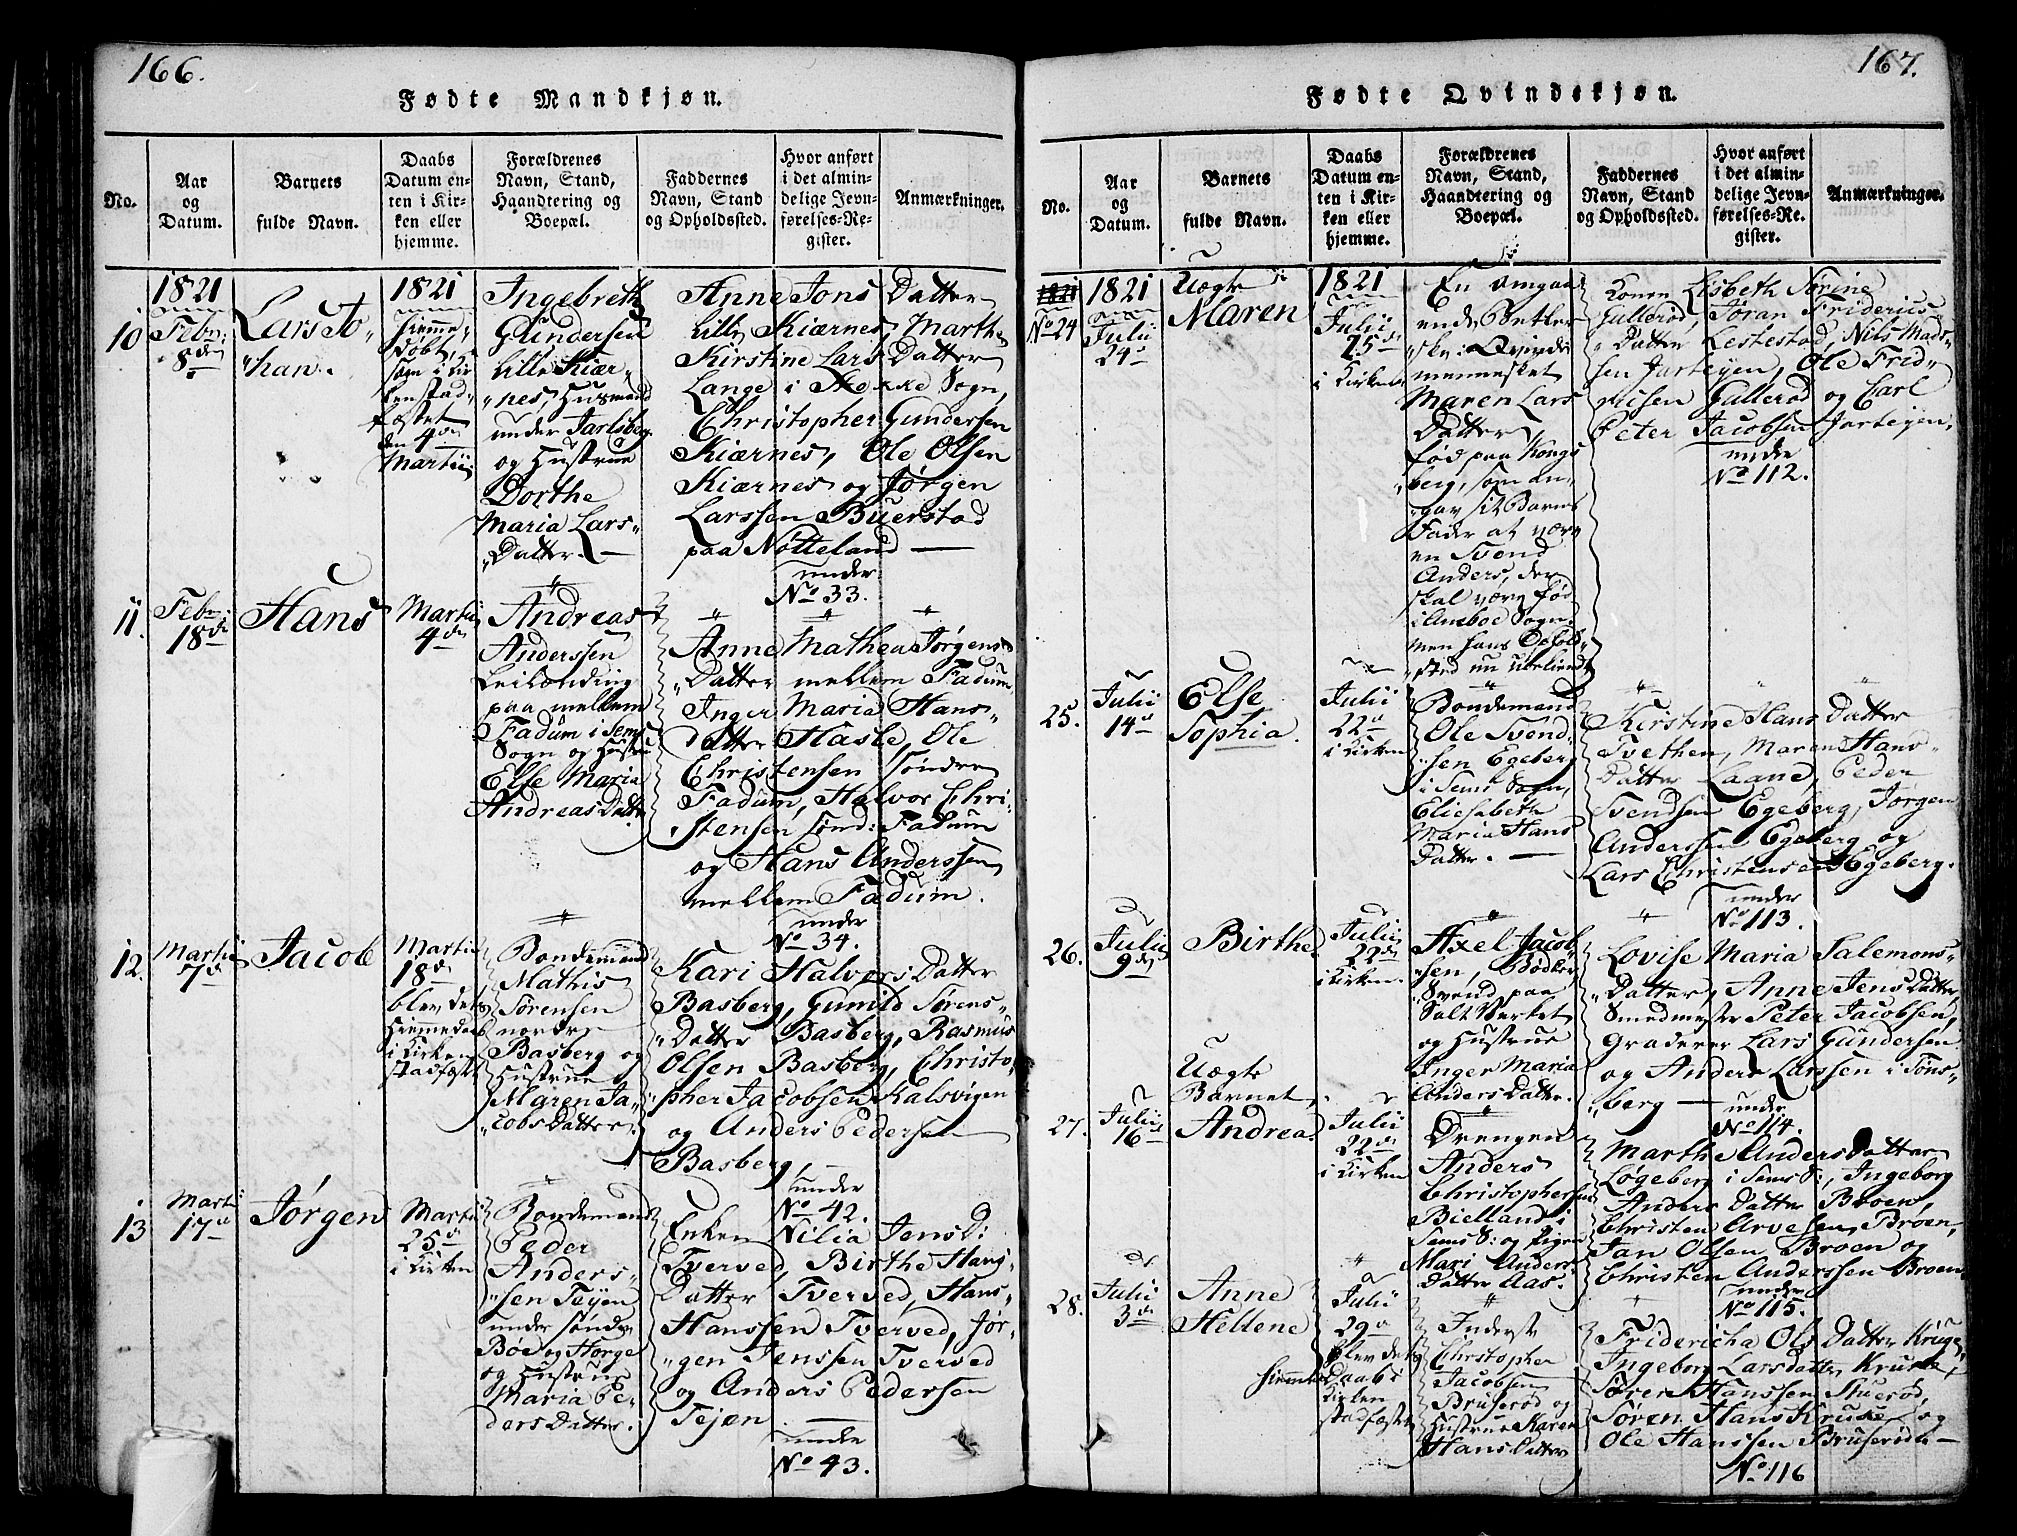 166.
Fødte Mandkjøn.
No.
Aar
og
Datum.
Barnets
fulde Navn.
Daabs
Datum en-
ten i Kir-
ken eller
hjemme.
Forældrenes
Navn, Stand,
Haandtering og
Boepæl.
Faddernes
Navn, Stand
og Opholdssted.
Hvor anført
i det almin-
delige Jevn-
førelses-Re-
gister.
Anmærkninger.
10
1821
Febr:
8de
Lars Jo-
han.
1821
hjemme-
døbt,
som i Kir
ken stad-
fæstet
den 4de
Martii
Ingebreth
Gundersen
Lille Kiær-
nes, Husmand
under Jarlsberg
og Hustrue
Dorthe
Maria Lars-
Datter.
Anne Jons Datter
Lille Kiærnes, Marthe
Kirstine Lars Datter
Lange i Stokke Sogn,
Christopher Gundersen
Kiærnes, Ole Olsen
Kiærnes og Jørgen
Larssen Buerstad
paa Nøtteland
under
No 33.
11.
Febr:
18de
Hans
Martii
4de
Andreas
Anderssen
Leilænding
paa mellem
Fadum i Sems
Sogn og Hustrue
Else Maria
Andreas Datt:
Anne Mathea Jørgens
Datter mellem Fadum
Inger Maria Hans-
datter Hasle, Ole
Christensen søndre
Fadum, Halvor Chri-
stensen sønd: Fadum
og Hans Anderssen
mellem Fadum.
under
No 34.
12.
Martii
7de
Jacob
Martii
18de
blev dets
Hiemmedaab
i Kirken
stadfæstet
Bondemand
Mathis
Sørensen
nordre
Basberg og
Hustrue
Maren Ja-
cobs Datter.
Kari Halvors Datter
Basberg, Gunild Sørens-
Datter Basberg, Rasmus
Olsen Basberg, Christo-
pher Jacobsen Kalsvigen
og Anders Pedersen
Basberg,
under
No 42.
13
Martii
17de
Jørgen
Martii
25de
i Kirken
Bondemand
Peder
Anders-
sen Tejen
under søndre
Bøe og Horge
og Hustrue
Maria Pe-
ders Datter.
Enken Nilia Jens D:
Tverved, Birthe Hans-
Datter Tverved, Hans-
Hanssen Tverved, Jør-
gen Jenssen Tverved
og Anders Pedersen
Tejen.
under
No 43.
167.
Fødte Qvindekjøn.
No.
Aar
og
Datum.
Barnets
fulde Navn.
Daabs
Datum en-
ten i Kir-
ken eller
hjemme.
Forældrenes
Navn, Stand,
Haandtering og
Boepæl.
Faddernes
Navn, Stand
og Opholdssted.
Hvor anført
i det almin-
delige Jevn-
førelses-Re-
gister.
Anmærkninger.
1821
No 24
1821
Julii
24de
Uægte
Maren
1821
Julii
25de
i Kirken
En omgaa-
ende Betler-
ske: Qvinde
mennesket
Maren Lars
Datter
fød paa Kongs
berg, som an-
gav sit Barns
Fader at være
en Svend
Anders, der
skal være fød
Sogn.
men hans Ophold-
sted nu ubekiendt
Konen Lisbeth Sørine
Gullerød, Søran Friderics
Datter Lestestad, Nils Mad-
sen Jarteyen, Ole Frid-
ricsen Gullerød og Carl
Peter Jacobsen Jarteyen,
under
No 112.
25.
Julii
14de
Else
Sophia.
Julii
22de
i Kirken
Bondemand
Ole Svend
sen Egeberg
i Sems Sogn,
Eliesabeth
Maria Hans
Datter.
Kirstine Hans Datter
Tvethen, Maren Hans-
Datter Laane, Peder
Svendsen Egeberg, Jørgen
Anderssen Egeberg og
Lars Christensen Egeberg.
under
No 113.
26.
Julii
9de
Birthe.
Julii
22de
i Kirken.
Axel Jacob
sen, Bødker
Svend paa
Salt Værket
og Hustrue
Inger Maria
Anders Datter.
Lovise Maria Salemons-
Datter, Anne Jens Datter,
Smedmester Peter Jacobsen,
Graderer Lars Gundersen
og Anders Larssen i Tøns-
berg
under
No 114.
27.
Julii
16de
Uægte
Barnet,
Andrea.
Julii
22de
i Kirken
Drengen
Anders
Christophersen
Bielland i
Sems S: og Pigen
Mari Anders
Datter Aas.
Marthe Anders Datter
Løgeberg i Sems S:, Ingeborg
Anders Datter Broen,
Christen Arvesen, Broen,
Jan Olsen, Broen og
Christen Anderssen Broen
under
No 115.
28.
Julii
3de
Anne
Hellene
Julii
29de
blev dets
hiemme Daabs
i Kirken
stadfæstet
Inderst
Christopher
Jacobsen
Bruserød og
Hustrue Karen
Hans Datter
Fridericha Ols Datter Kruge,
Ingeborg Larsdatter Kruse,
Søren Hanssen Stuerød,
Søren Hans Kruse og
Ole Hanssen Bruserød
No 116